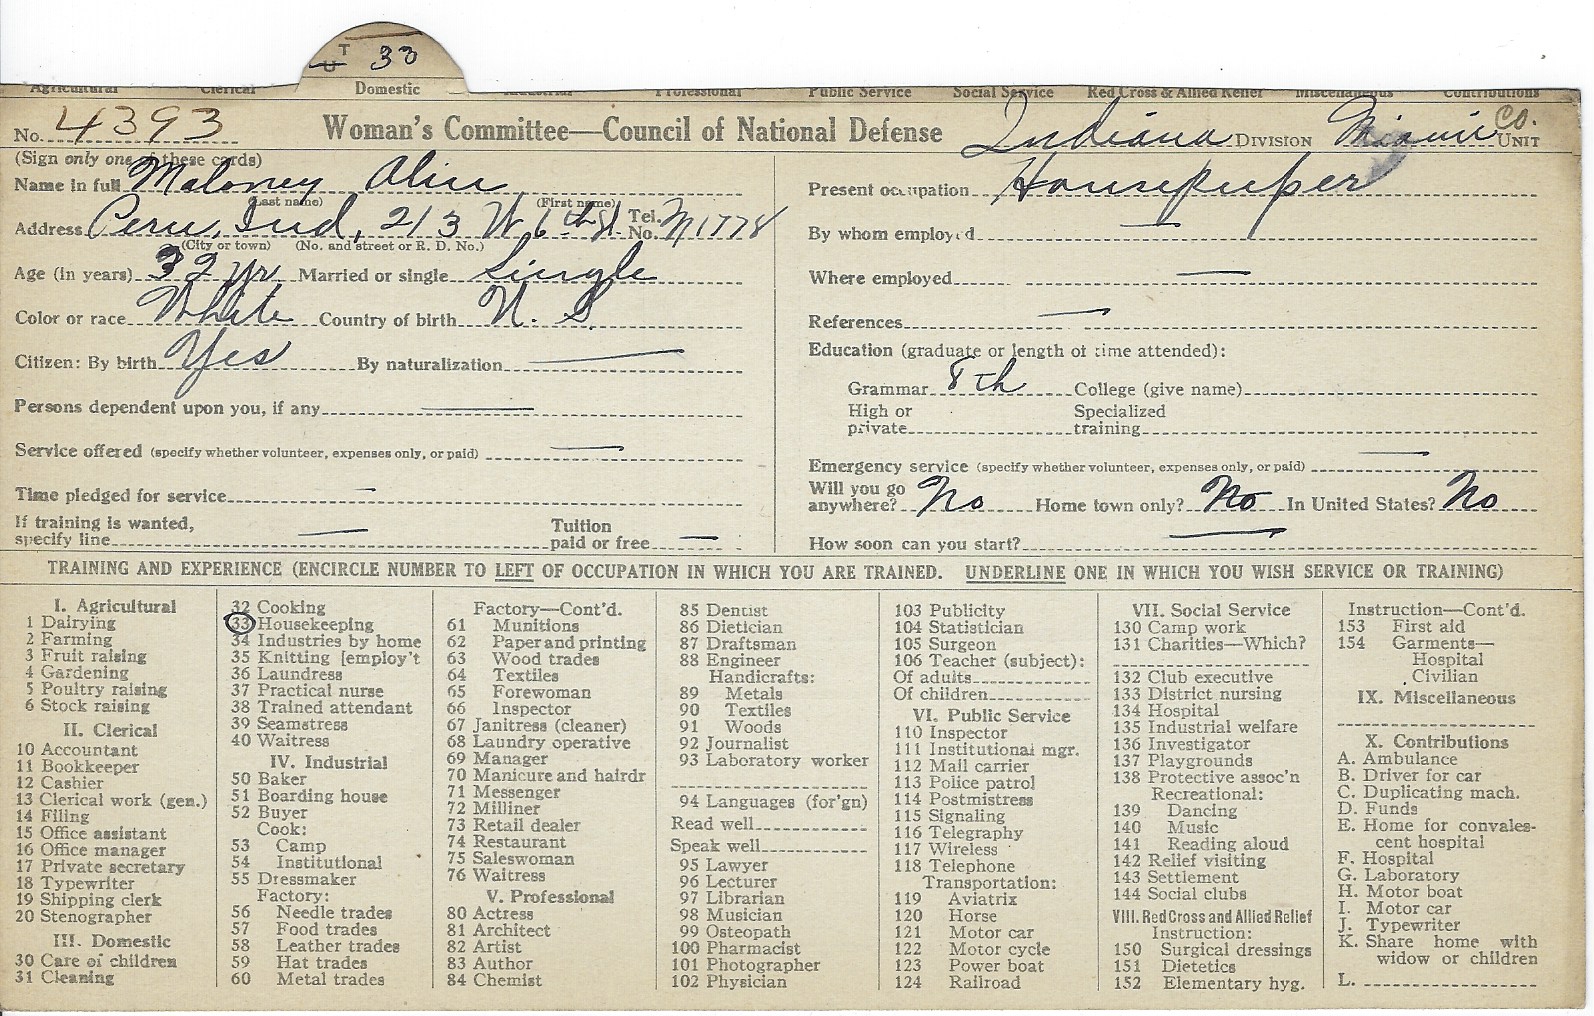 T
U 33
Agricultural Clerical Domestic Industrial Professional Public Service Social Service Red Cross & Allied Relief Miscellaneous Contributions
No. 4393 Woman's Committee—Council of National Defense Indiana DIVISION Miami Co. UNIT
(Sign only one of these cards)
Name in full Maloney Alice
(Last name) (First name)
Address Peru, Ind, 213 W. 6th St. Tel. No. M1778
(City or town) (No. and street or R. D. No.)
Age (in years) 32 yr Married or single Single
Color or race White Country of birth U. S.
Citizen: By birth Yes By naturalization —
Persons dependent upon you, if any —
Service offered (specify whether volunteer, expenses only, or paid) —
Time pledged for service —
If training is wanted,
specify line — Tuition paid or free —
Present occupation Housekeeper
By whom employed —
Where employed —
References —
Education (graduate or length of time attended):
Grammar 8th College (give name)
High or private Specialized training
Emergency service (specify whether volunteer, expenses only, or paid) —
Will you go anywhere? No Home town only? No In United States? No
How soon can you start? —
TRAINING AND EXPERIENCE (ENCIRCLE NUMBER TO LEFT OF OCCUPATION IN WHICH YOU ARE TRAINED. UNDERLINE ONE IN WHICH YOU WISH SERVICE OR TRAINING)
I. Agricultural
1 Dairying
2 Farming
3 Fruit raising
4 Gardening
5 Poultry raising
6 Stock raising
II. Clerical
10 Accountant
11 Bookkeeper
12 Cashier
13 Clerical work (gen.)
14 Filing
15 Office assistant
16 Office manager
17 Private secretary
18 Typewriter
19 Shipping clerk
20 Stenographer
III. Domestic
30 Care of children
31 Cleaning
32 Cooking
33 Housekeeping
34 Industries by home
35 Knitting [employ't
36 Laundress
37 Practical nurse
38 Trained attendant
39 Seamstress
40 Waitress
IV. Industrial
50 Baker
51 Boarding house
52 Buyer
Cook:
53 Camp
54 Institutional
55 Dressmaker
Factory:
56 Needle trades
57 Food trades
58 Leather trades
59 Hat trades
60 Metal trades
Factory—Cont'd.
61 Munitions
62 Paper and printing
63 Wood trades
64 Textiles
65 Forewoman
66 Inspector
67 Janitress (cleaner)
68 Laundry operative
69 Manager
70 Manicure and hairdr
71 Messenger
72 Milliner
73 Retail dealer
74 Restaurant
75 Saleswoman
76 Waitress
V. Professional
80 Actress
81 Architect
82 Artist
83 Author
84 Chemist
85 Dentist
86 Dietician
87 Draftsman
88 Engineer
Handicrafts:
89 Metals
90 Textiles
91 Woods
92 Journalist
93 Laboratory worker
94 Languages (for'gn)
Read well
Speak well
95 Lawyer
96 Lecturer
97 Librarian
98 Musician
99 Osteopath
100 Pharmacist
101 Photographer
102 Physician
103 Publicity
104 Statistician
105 Surgeon
106 Teacher (subject):
Of adults
Of children
VI. Public Service
110 Inspector
111 Institutional mgr.
112 Mail carrier
113 Police patrol
114 Postmistress
115 Signaling
116 Telegraphy
117 Wireless
118 Telephone
Transportation:
119 Aviatrix
120 Horse
121 Motor car
122 Motor cycle
123 Power boat
124 Railroad
VII. Social Service
130 Camp work
131 Charities—Which?
132 Club executive
133 District nursing
134 Hospital
135 Industrial welfare
136 Investigator
137 Playgrounds
138 Protective assoc'n
Recreational:
139 Dancing
140 Music
141 Reading aloud
142 Relief visiting
143 Settlement
144 Social clubs
VIII. Red Cross and Allied Relief
Instruction:
150 Surgical dressings
151 Dietetics
152 Elementary hyg.
Instruction—Cont'd.
153 First aid
154 Garments—
Hospital
Civilian
IX. Miscellaneous
X. Contributions
A. Ambulance
B. Driver for car
C. Duplicating mach.
D. Funds
E. Home for convales-
cent hospital
F. Hospital
G. Laboratory
H. Motor boat
I. Motor car
J. Typewriter
K. Share home with
widow or children
L.